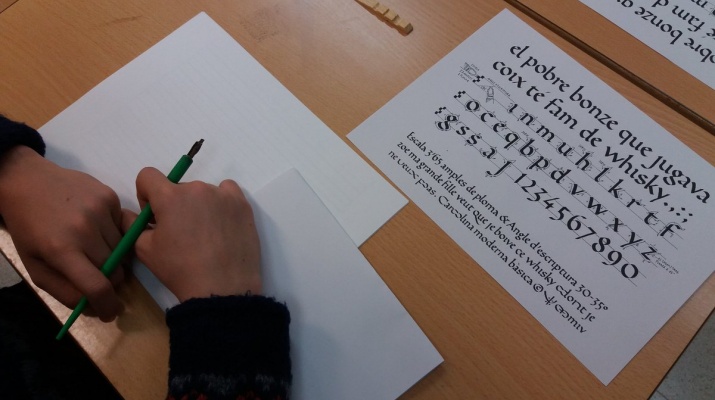 el pobre bonze que jugava
coix té fam de whisky...:
ı n m u h l k r t f
o c e q b p d v w x y z
g s s a j 1234567890
Escala 3'65 amples de ploma & Angle d'escriptura 30-35º
zoe ma grande fille veut que je boive ce whisky dont je
ne veux pas. Carolina moderna bàsica ©